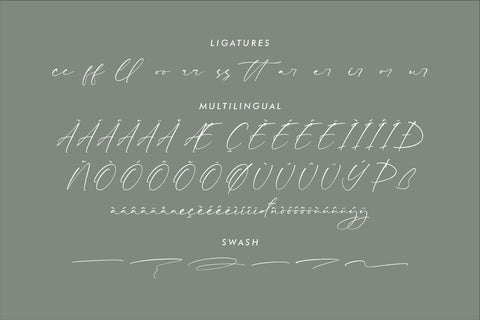 LIGATURES
cc ff ll oo rr ss tt ar er ir or ur
MULTILINGUAL
ÀÁÂÃÄÅÆÇÈÉÊËÌÍÎÏÐ
ÑÒÓÔÕÖØÙÚÛÜÝÞß
àáâãäåæçèéêëìíîïðñòóôõöùúûüýÿ
SWASH